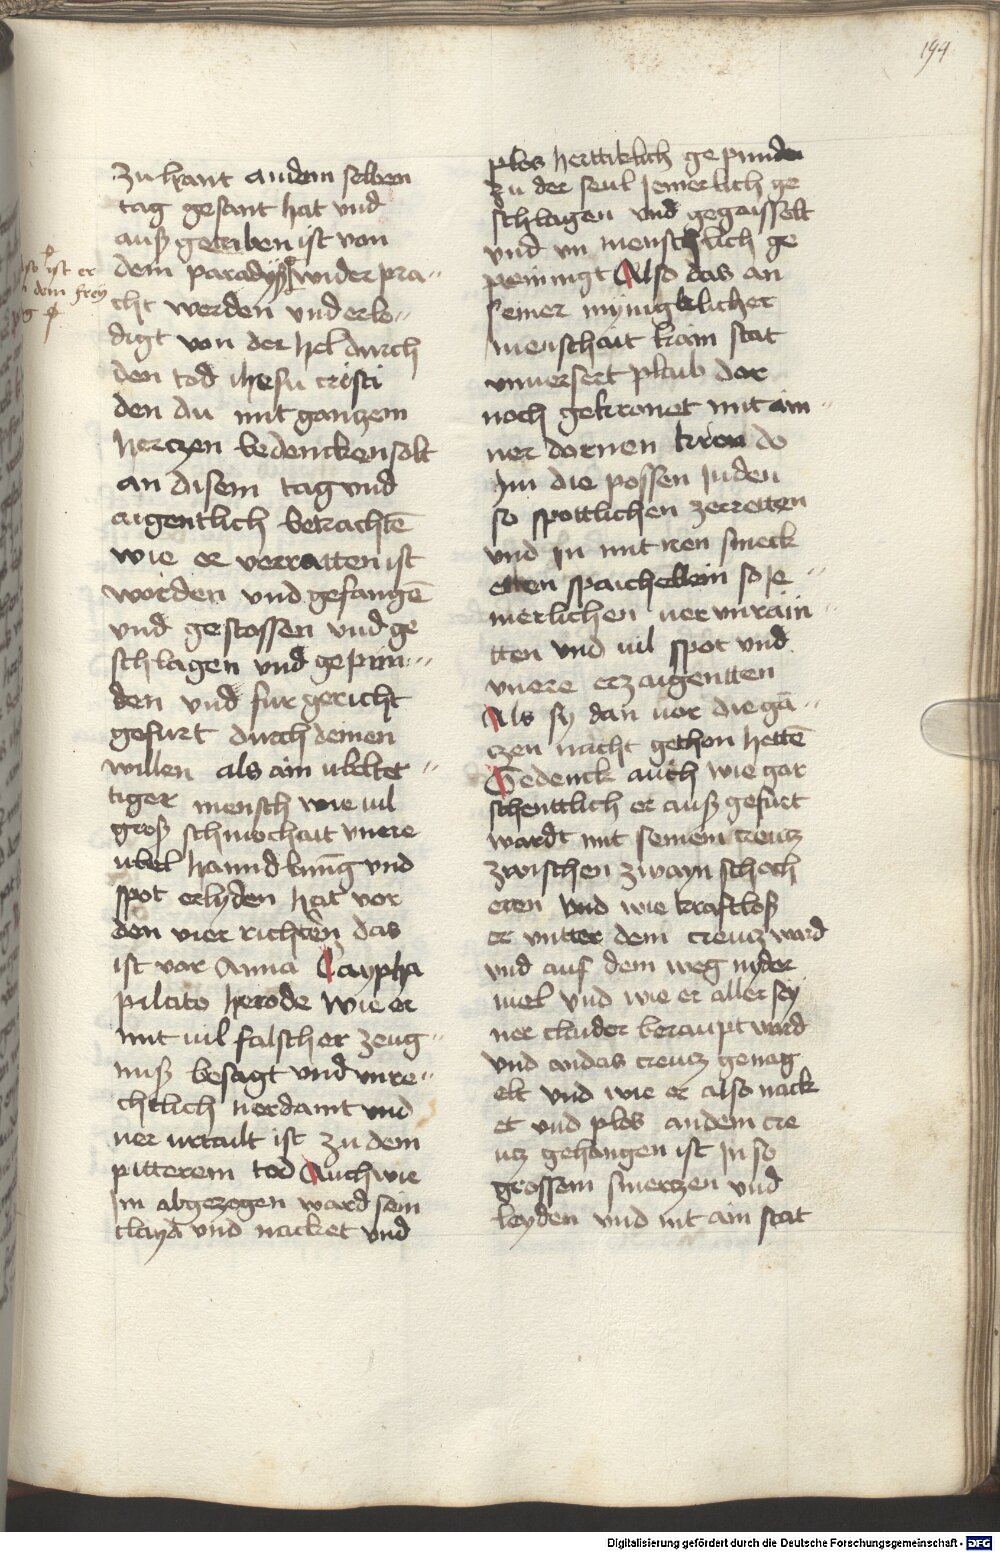 194
zu hant an dem selben
tag gesant hat vnd
auß getriben ist von
dem paradyß wider pra-
cht werden vnd erlo-
digt von der hel durch
den tod ihesu cristi
den du mit gantzem
hertzen bedencken solt
an disem tag vnd
aigentlich betrachtē
wie er verratten ist
worden vnd gefangē
vnd gestossen vnd ge
schlagen vnd gepun-
den vnd fur gericht
gefurt durch deinen
willen als ain ubeltet-
tiger mensch wie uil
groß schmochait vnere
ubel hanndlung vnd
spot erlyden hat vor
den vier richtern das
ist vor Anna Caypha
pilato herode wie er
mit uil falscher zeug-
nuß besagt vnd vnre-
chtlich uerdamt vnd
uer urtailt ist zu dem
pitterem tod Auch wie
Im abgezogen ward sein
clayd vnd nacket vnd
so ist er
dem frey
tg
plos herttiklich gepunden
zu der seul Jemerlich ge
schlagen vnd gegaisselt
vnd vn menschlich ge
peinnigt Also das an
seiner mynigklicher
menschait kain stat
vnuersert plaib dor
noch gekronet mit ain-
ner dornen kron do
Im die possen Juden
so spottlichen zerretten
vnd In mit iren smeck
etten spaichellein so Je-
merlichen uer vnrain-
tten vnd uil spot vnd
vnere erzaigentten
Als sy dan uor die gā-
czen nacht gethon hettē
Gedenck auch wie gar
schenttlich er auß gefurt
wardt mit seinem creutz
zwischen zwayn schoch
eren vnd wie kraftloß
er vntter dem creutz ward
vnd auf dem weg nyder
uiel vnd wie er aller sey
ner claider beraupt ward
vnd an das creutz genag
elt vnd wie er also nack
et vnd plos an dem cre
utz gehangen ist In so
grossem smertzen vnd
leyden vnd nit ain stat
Digitalisierung gefördert durch die Deutsche Forschungsgemeinschaft - DFG